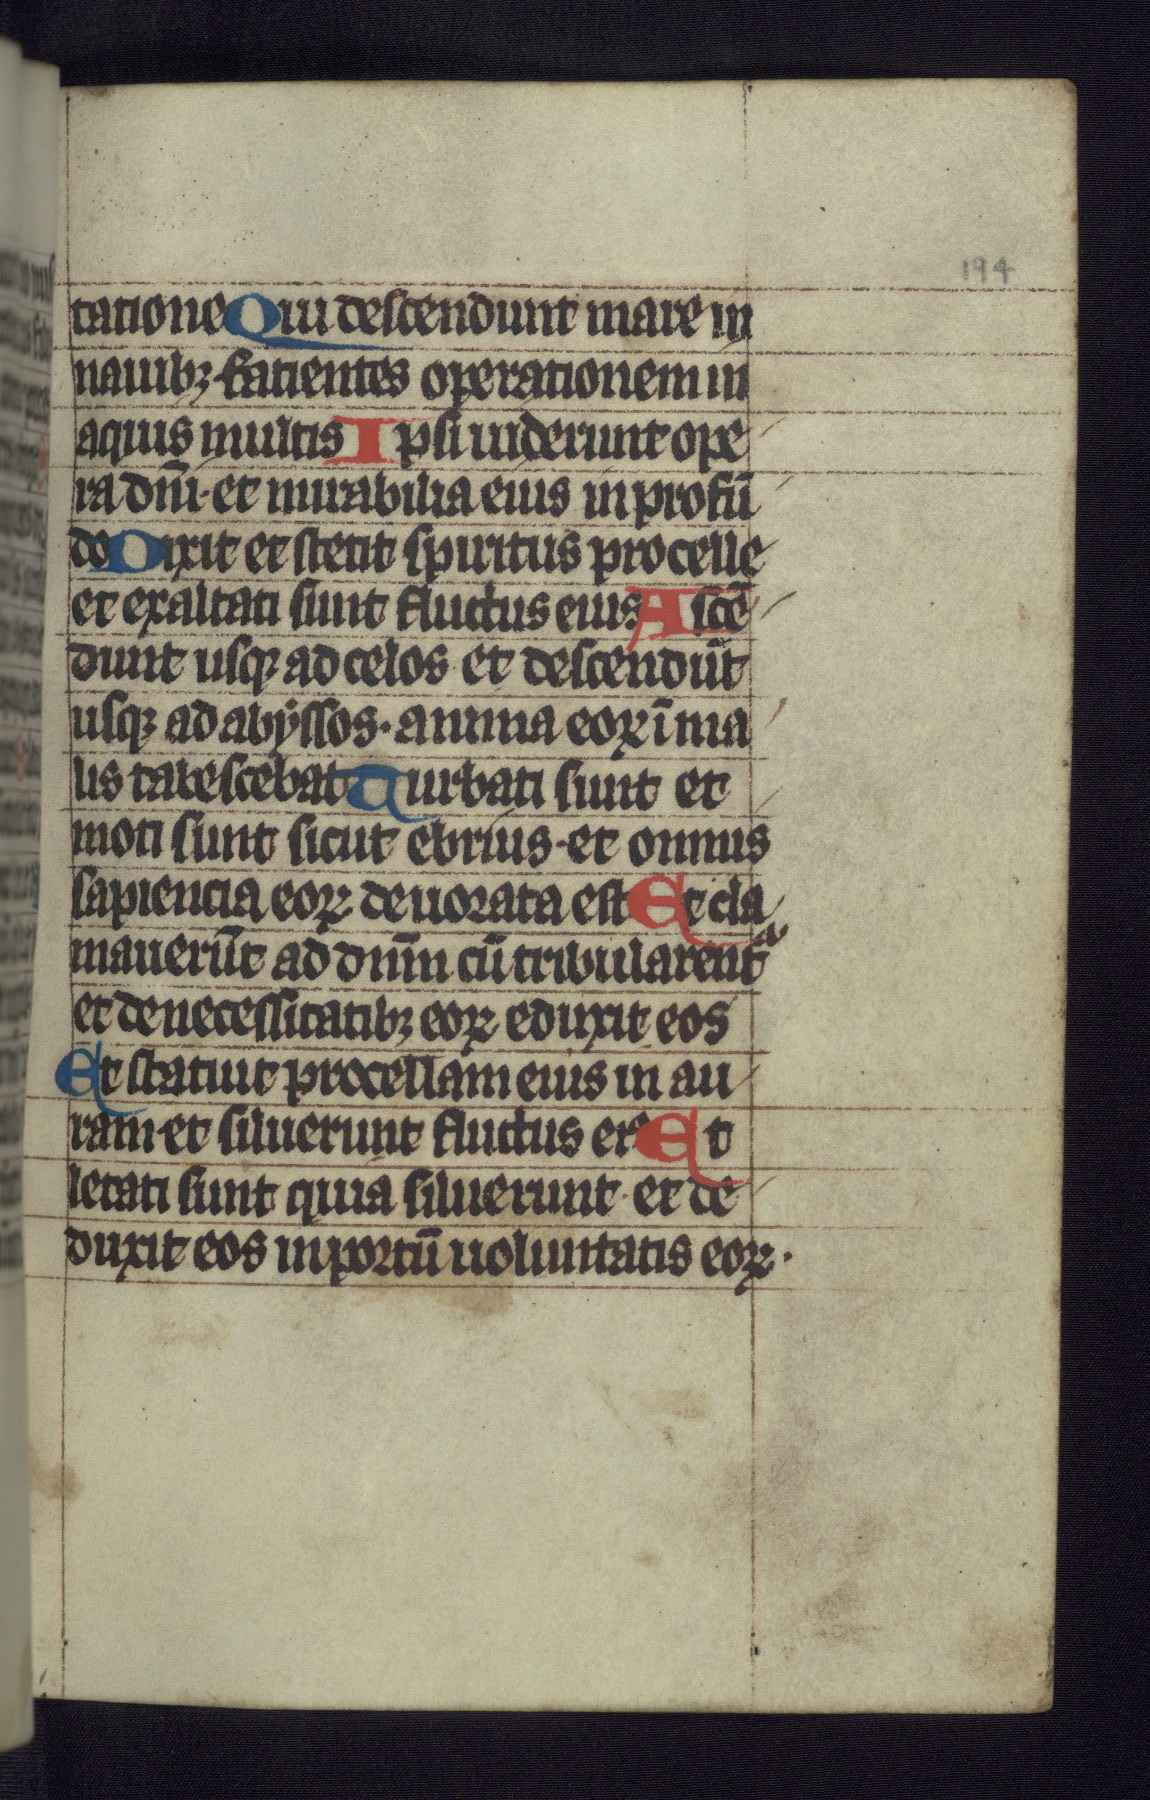 194
tatione Qui descendunt mare in
nauibꝫ · facientes operationem in
aquis multis Ipsi uiderunt ope
ra dn̄i · et mirabilia eius in profū
do Dixit et stetit spiritus procelle
et exaltati sunt fluctus eius Ascē
dunt usqꝫ ad celos et descendūt
usqꝫ ad abyssos · anima eoꝝ ī ma
lis tabescebat Turbati sunt et
moti sunt sicut ebrius · et omnis
sapiencia eoꝝ deuorata est Et cla
mauerūt ad dn̄m cū tribularentᷓ
et de necessitatibꝫ eoꝝ eduxit eos
Et statuit procellam eius in au
ram · et siluerunt fluctus eiꝰ Et
letati sunt quia siluerunt · et de
duxit eos in portū uoluntatis eoꝝ ·